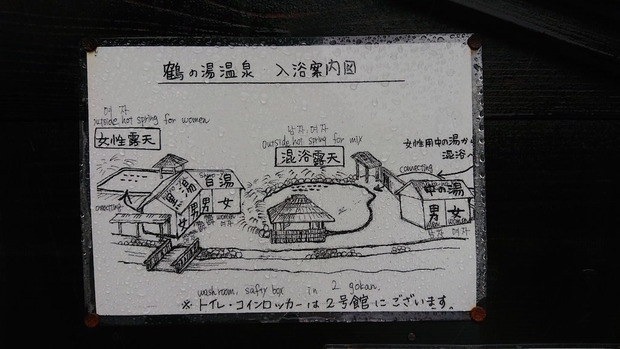 鶴の湯温泉 入浴案内図
여 자
outside hot spring for women
女性露天
남자, 여자
outside hot spring for mix
混浴露天
女性用中の湯から
混浴へ
connecting
connecting
黒湯
女 男
白湯
男 女
women
여자
中の湯
男 女
men women
남자 여자
washroom, safty box in 2 gokan.
※トイレ・コインロッカーは2号館にございます。